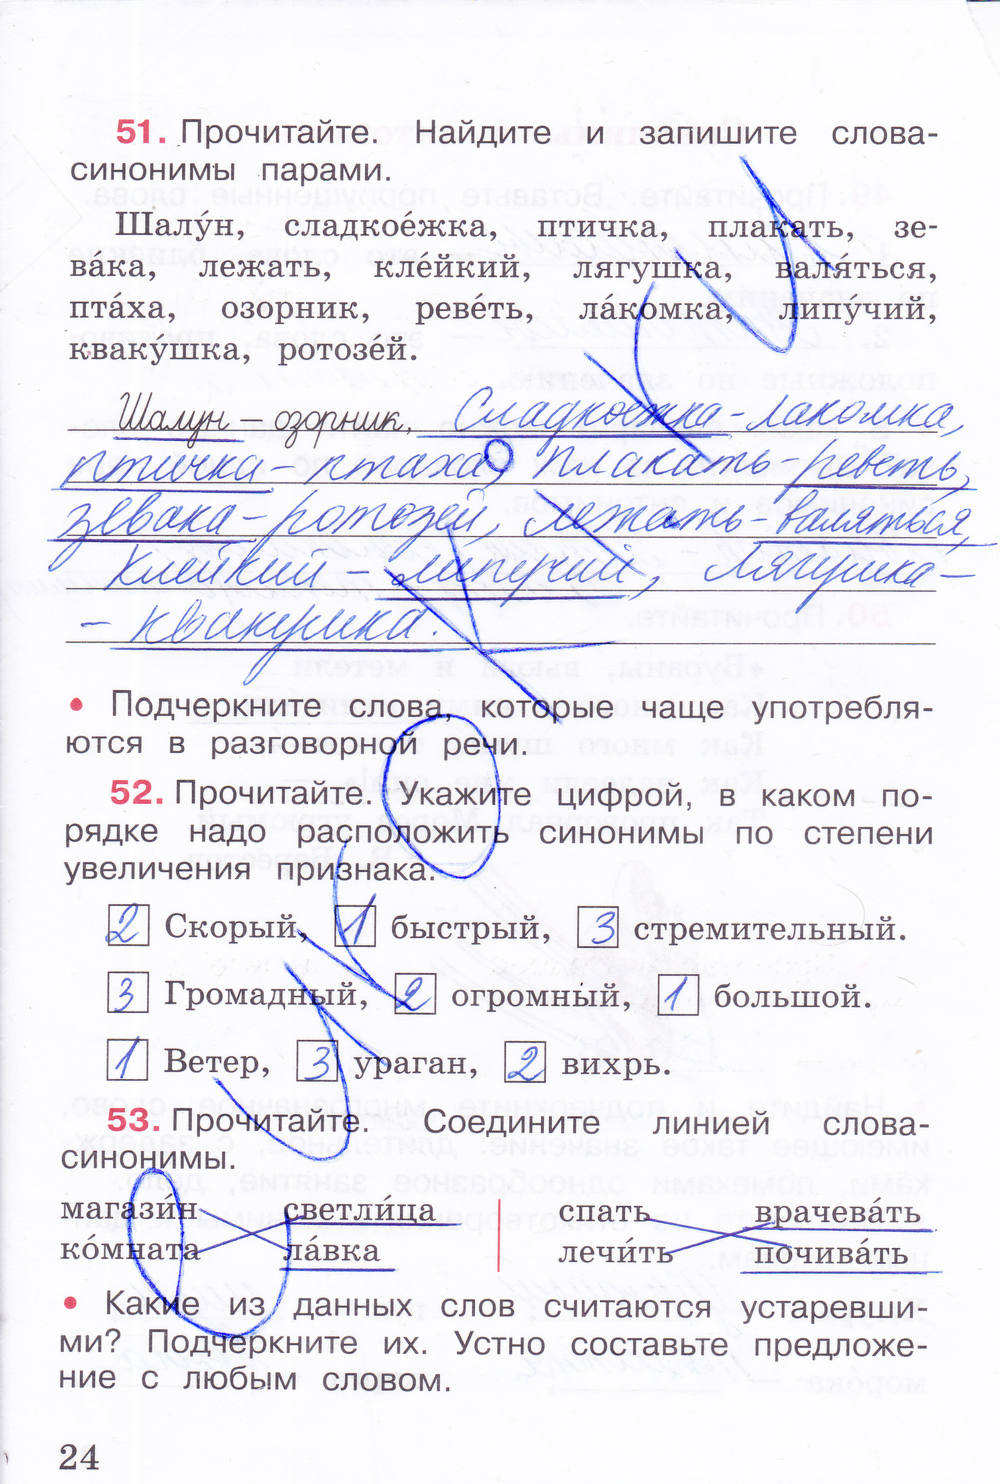 51. Прочитайте. Найдите и запишите слова-
синонимы парами.
Шалу́н, сладкое́жка, птичка, плакать, зе-
ва́ка, лежать, кле́йкий, лягушка, валя́ться,
пта́ха, озорник, реве́ть, ла́комка, липу́чий,
кваку́шка, ротозе́й.
Шалун – озорник, Сладкоежка – лакомка,
птичка – птаха, плакать – реветь,
зевака – ротозей, лежать – валяться,
Клейкий – липучий, Лягушка –
– квакушка.
• Подчеркните слова, которые чаще употребля-
ются в разговорной речи.
52. Прочитайте. Укажите цифрой, в каком по-
рядке надо расположить синонимы по степени
увеличения признака.
2 Скорый, 1 быстрый, 3 стремительный.
3 Громадный, 2 огромный, 1 большой.
1 Ветер, 3 ураган, 2 вихрь.
53. Прочитайте. Соедините линией слова-
синонимы.
магази́н светли́ца спать врачева́ть
ко́мната ла́вка лечи́ть почива́ть
• Какие из данных слов считаются устаревши-
ми? Подчеркните их. Устно составьте предложе-
ние с любым словом.
24